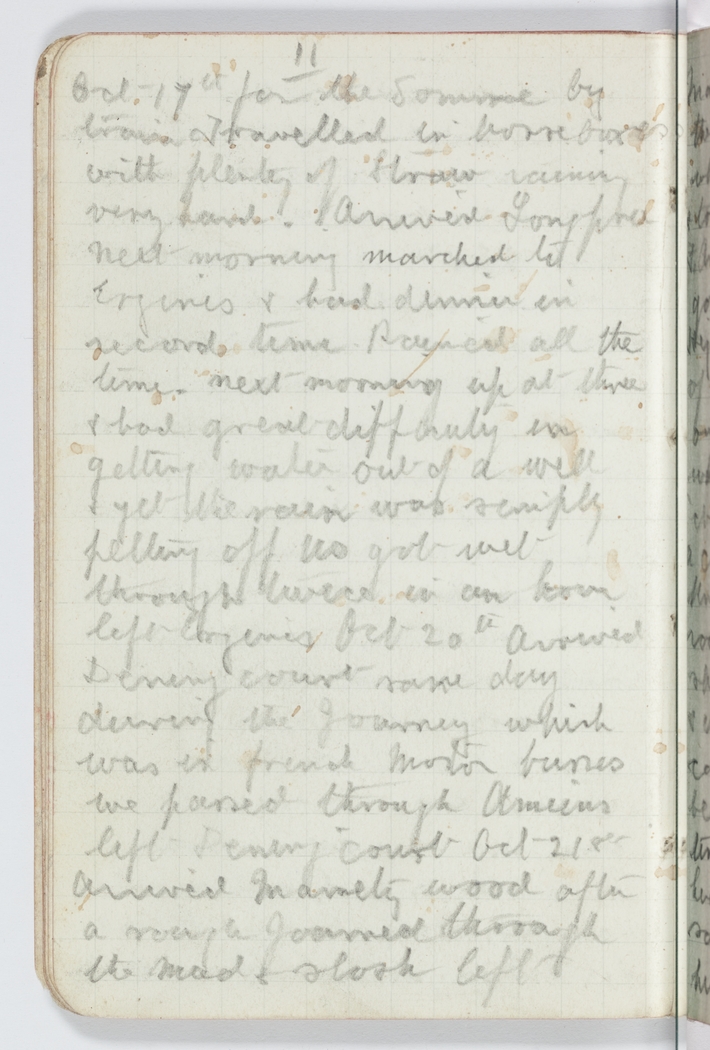 11
Oct 17th for the Somme by
train Travelled in horse boxes
with plenty of straw raining
very hard. Arrived Longpre
next morning marched to
Ergnies & had dinner in
record time Rained all the
time. next morning up at three
& had great difficulty in
getting water out of a well
& yet the rain was simply
pelting off us got wet
through twice in an hour
left Ergnies Oct 20th Arrived
Derneycourt same day
during the Journey which
was in french Motor busses
we passed through Amiens
left Derneycourt Oct 21st
Arrived Mametz wood after
a rough Journed through
the mud & slosh left